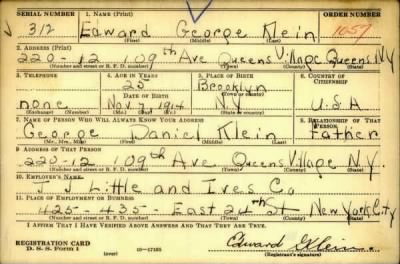 SERIAL NUMBER 1. NAME (Print) ORDER NUMBER
312 Edward George Klein 1057
(First) (Middle) (Last)
2. ADDRESS (Print)
220-12 109th Ave Queens Village Queens N.Y.
(Number and street or R. F. D. number) (Town) (County) (State)
3. TELEPHONE 4. AGE IN YEARS 5. PLACE OF BIRTH 6. COUNTRY OF CITIZENSHIP
25 Brooklyn
DATE OF BIRTH (Town or county)
none Nov 7, 1914 N.Y. USA
(Mo.) (Day) (Yr.) (State or country)
7. NAME OF PERSON WHO WILL ALWAYS KNOW YOUR ADDRESS 8. RELATIONSHIP OF THAT PERSON
George Daniel Klein Father
(Mr., Mrs., Miss) (First) (Middle) (Last)
9. ADDRESS OF THAT PERSON
220-12 109th Ave Queens Village N.Y.
(Number and street or R. F. D. number) (Town) (County) (State)
10. EMPLOYER'S NAME
J J Little and Ives Co
11. PLACE OF EMPLOYMENT OR BUSINESS
425-435 East 24th St New York City
(Number and street or R. F. D. number) (Town) (County) (State)
I AFFIRM THAT I HAVE VERIFIED ABOVE ANSWERS AND THAT THEY ARE TRUE.
REGISTRATION CARD
D. S. S. Form 1 (over) 16-17105 Edward Klein
(Registrant's signature)